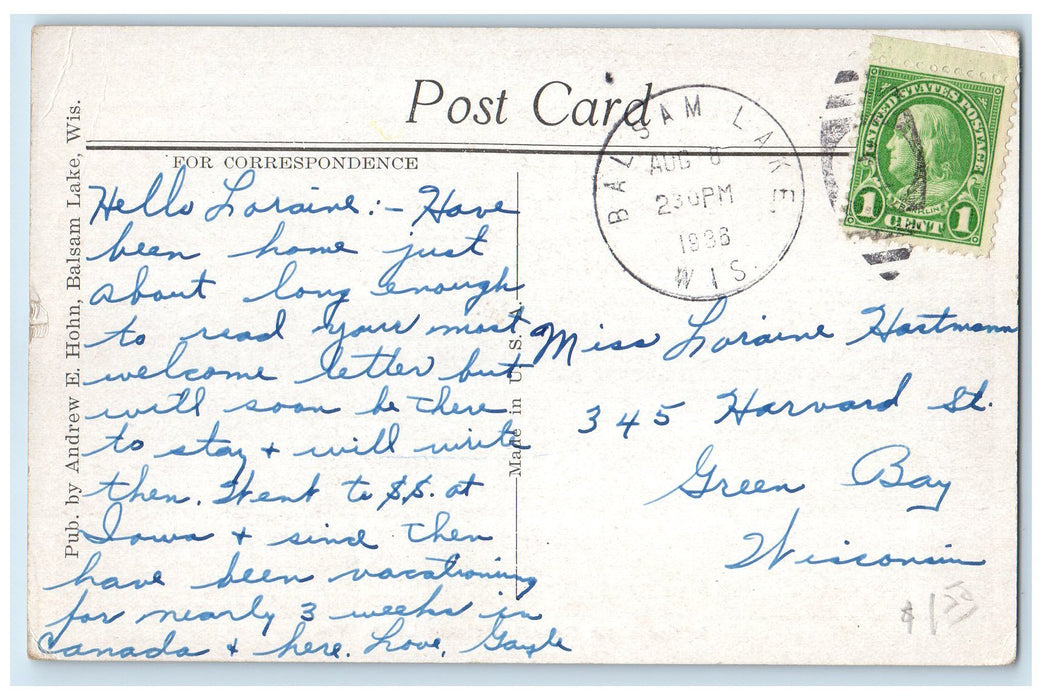 Post Card
FOR CORRESPONDENCE
Pub. by Andrew E. Hohn, Balsam Lake, Wis.
Made in U. S. A.
BALSAM LAKE
AUG 8
230PM
1936
WIS.
UNITED STATES POSTAGE
FRANKLIN
1 CENT 1
Hello Loraine:- Have
been home just
about long enough
to read your most
welcome letter but
will soon be there
to stay + will write
then. Went to S.S. at
Iowa + since then
have been vacationing
for nearly 3 weeks in
Canada + here. Love, Gayle
Miss Loraine Hartmann
345 Harvard St.
Green Bay
Wisconsin